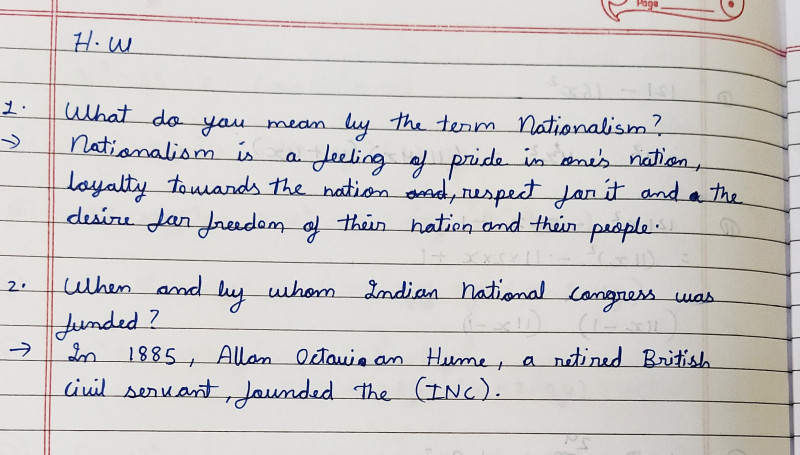 Page
H.W
1. What do you mean by the term Nationalism?
→ Nationalism is a feeling of pride in one's nation,
loyalty towards the nation and, respect for it and a the
desire for freedom of their nation and their people.
2. When and by whom Indian National Congress was
funded?
→ In 1885, Allan Octavian an Hume, a retired British
civil servant, founded the (INC).